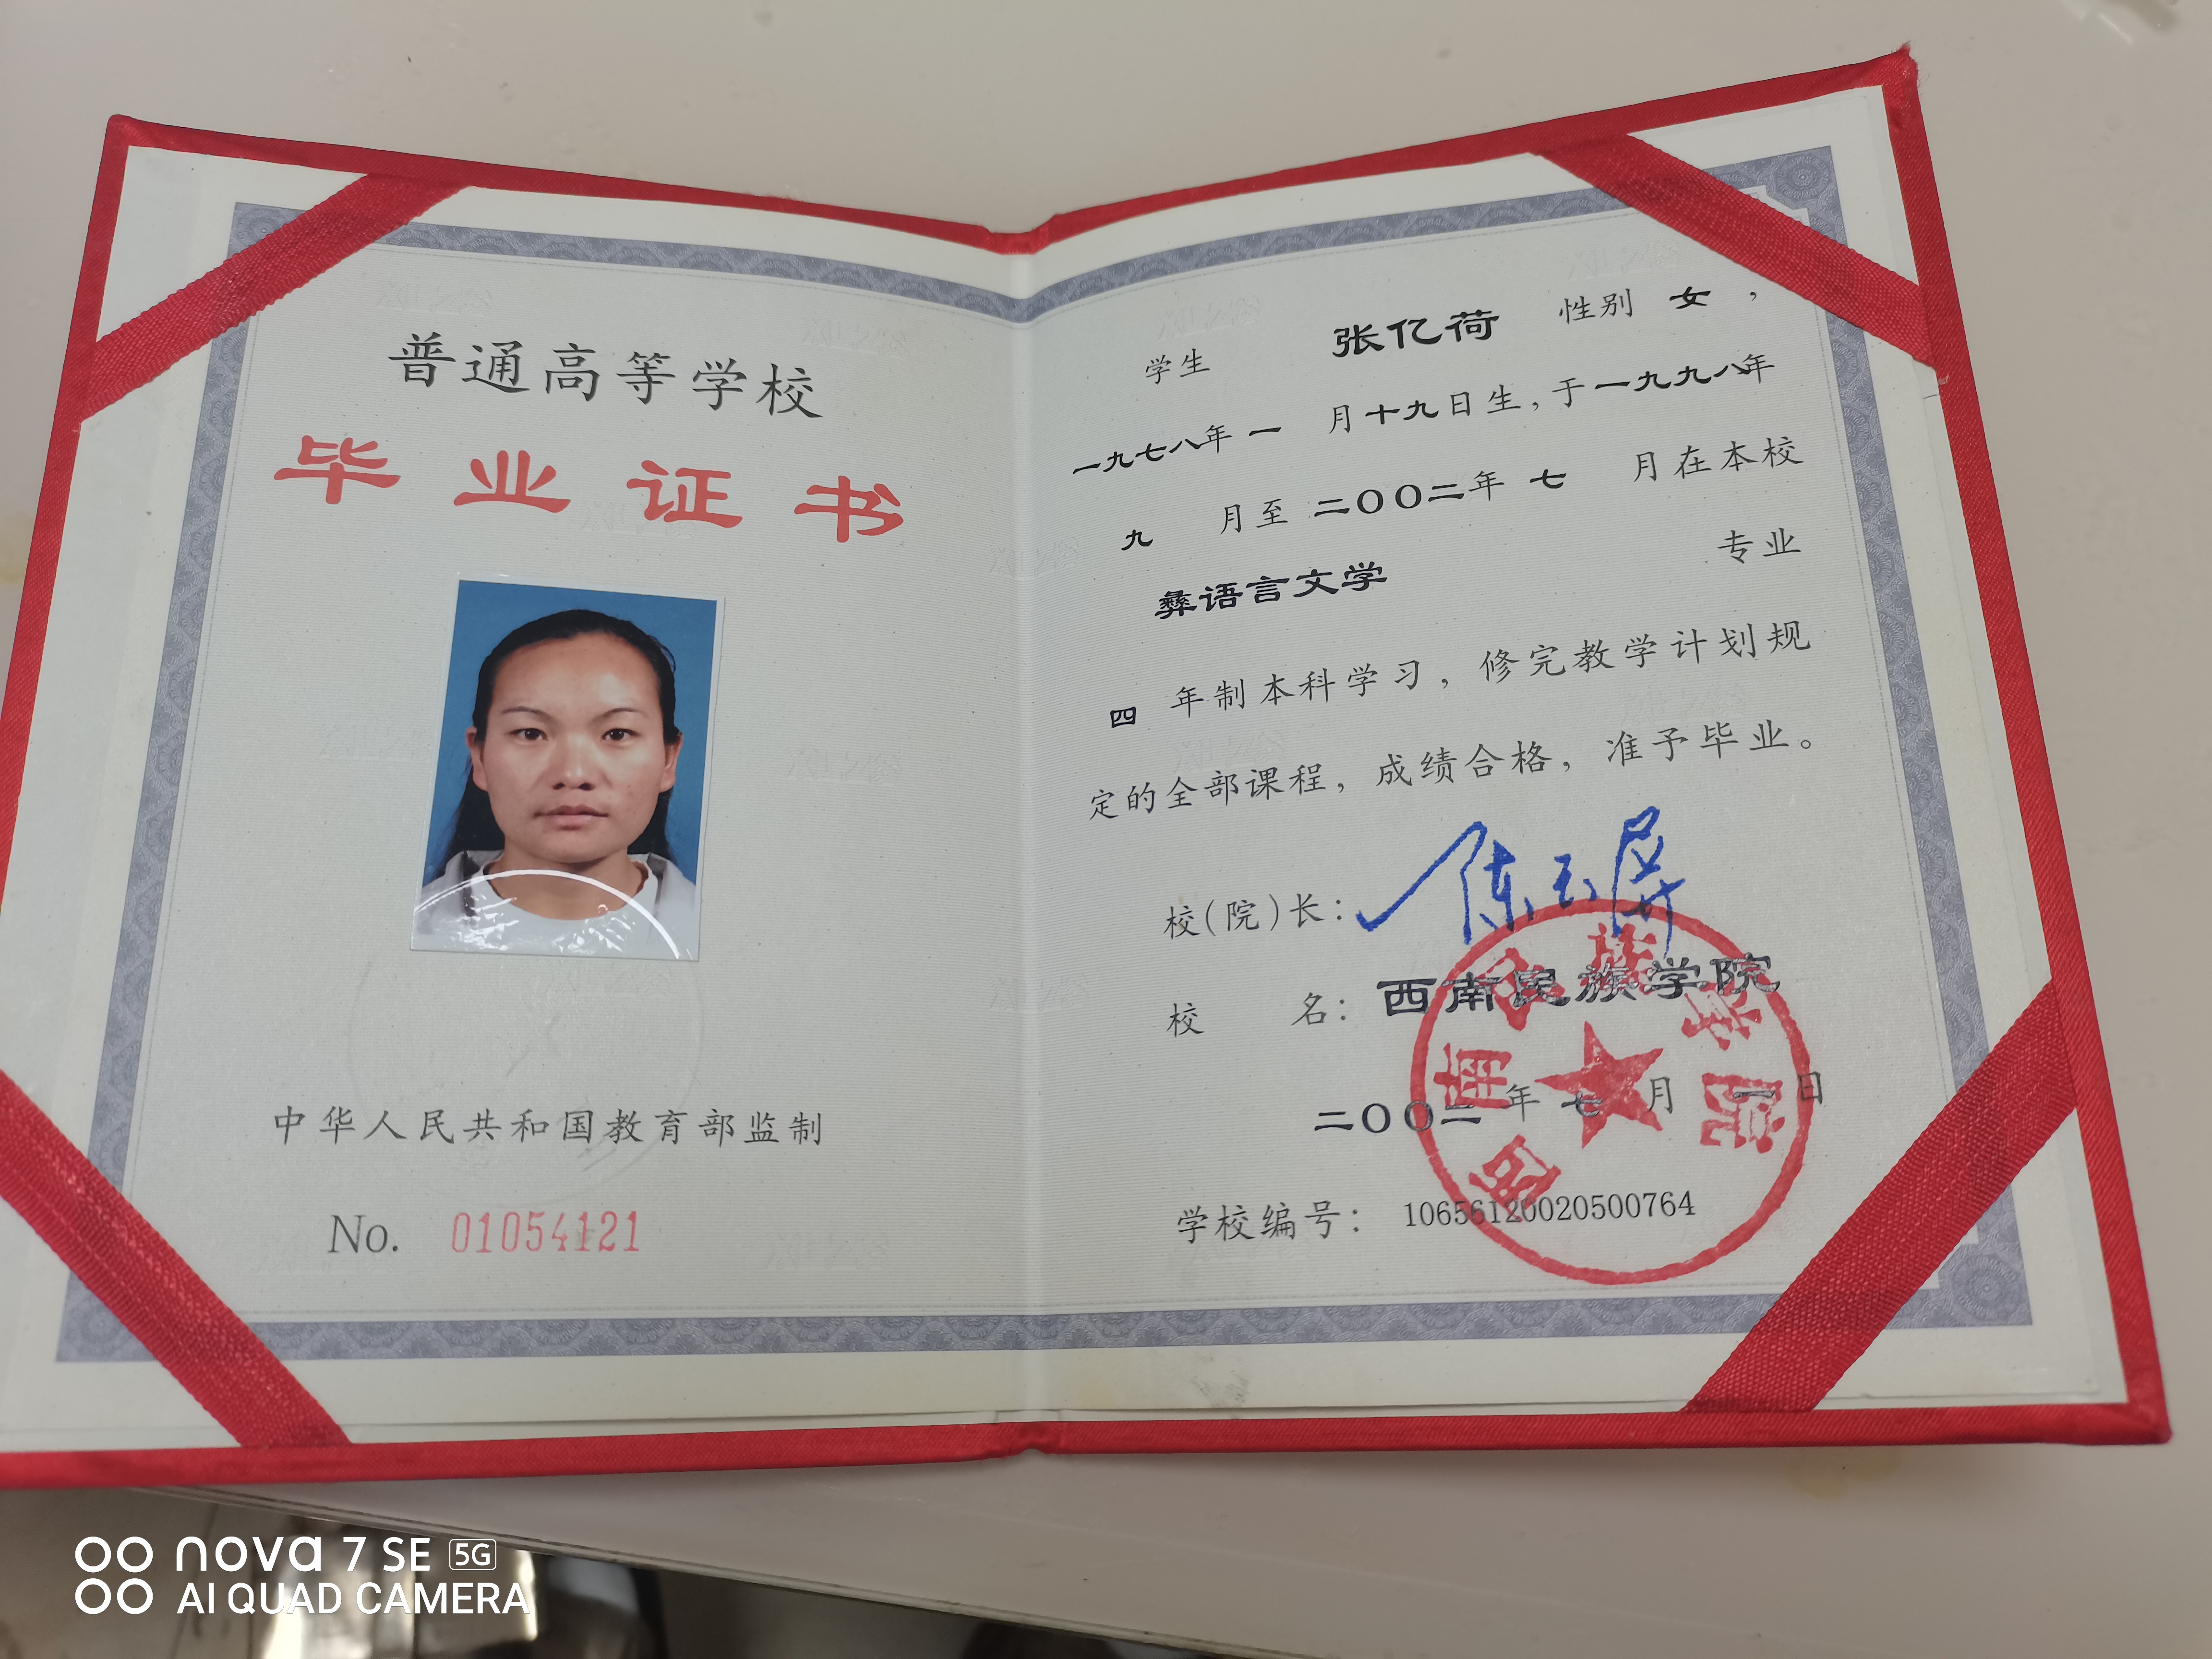 普通高等学校
毕业证书
中华人民共和国教育部监制
No. 01054121
学生 张亿荷 性别 女，
一九七八年 一 月十九日生，于一九九八年
九 月至 二〇〇二年 七 月在本校
彝语言文学 专业
四 年制本科学习，修完教学计划规
定的全部课程，成绩合格，准予毕业。
校(院)长：陈玉屏
校 名：西南民族学院
西南民族学院
二〇〇二年 七 月 一 日
学校编号：10656120020500764
nova 7 SE 5G
AI QUAD CAMERA